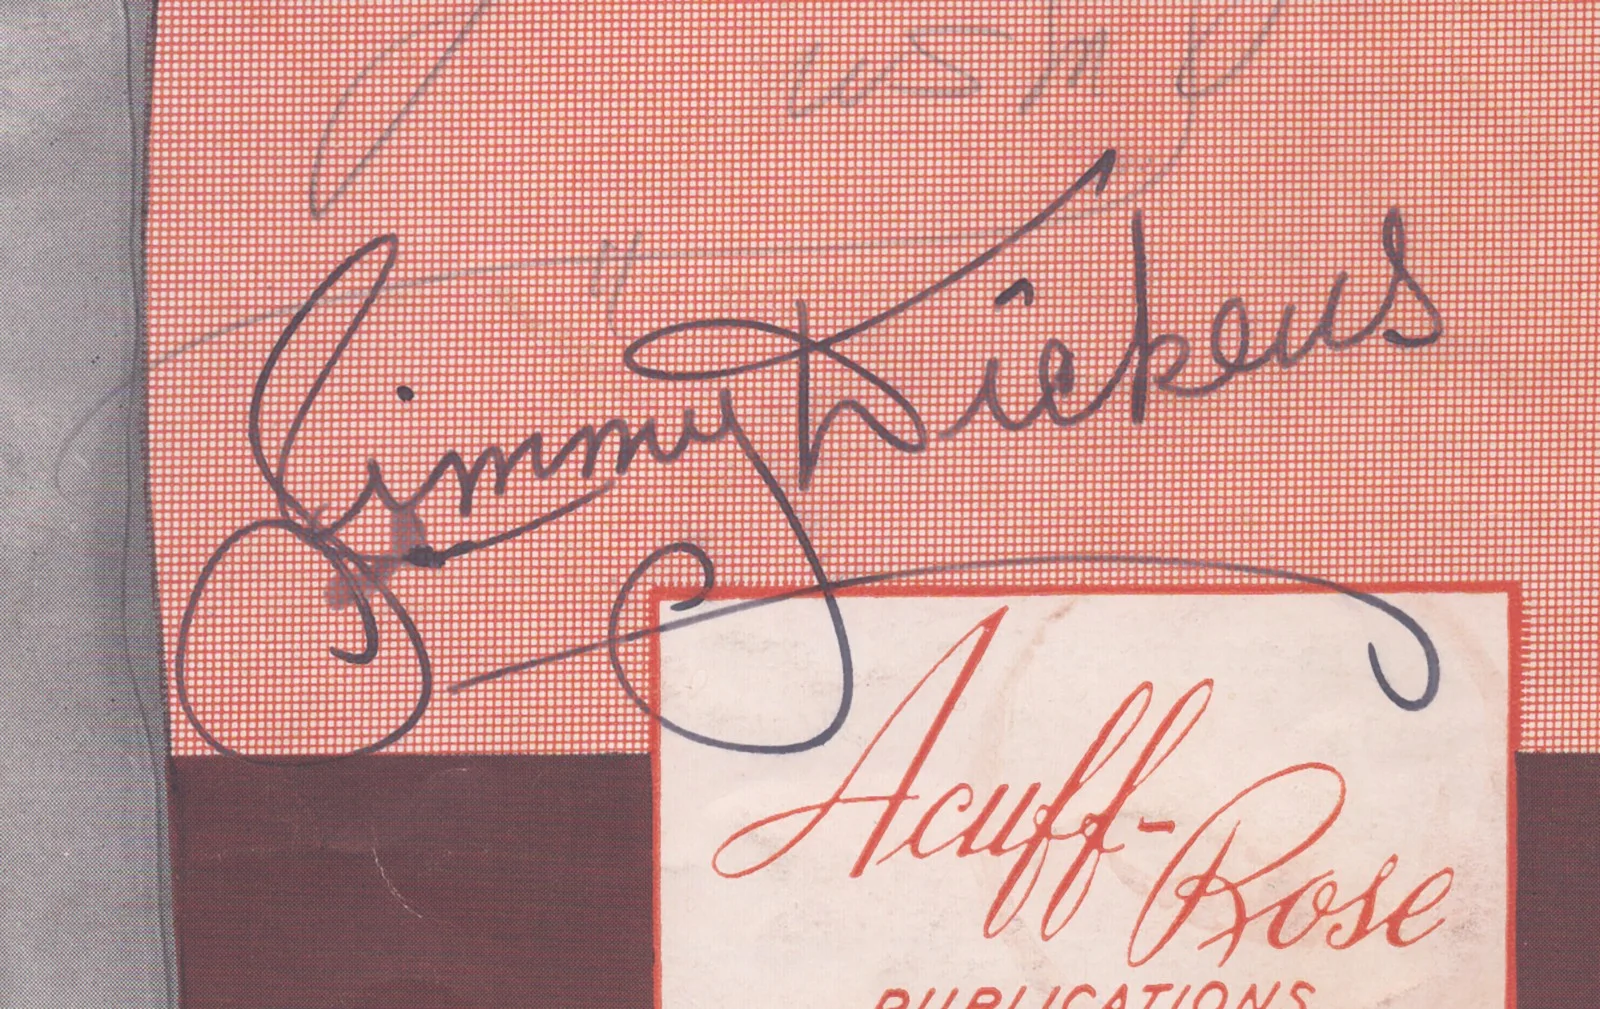 Jimmy Dickens
Acuff-Rose
PUBLICATIONS